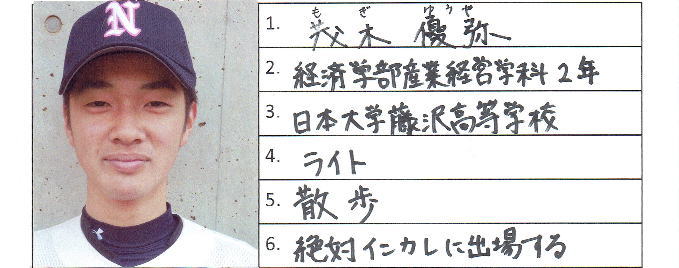 N
もぎ ゆうや
1. 茂木 優弥
2. 経済学部産業経営学科2年
3. 日本大学藤沢高等学校
4. ライト
5. 散歩
6. 絶対インカレに出場する